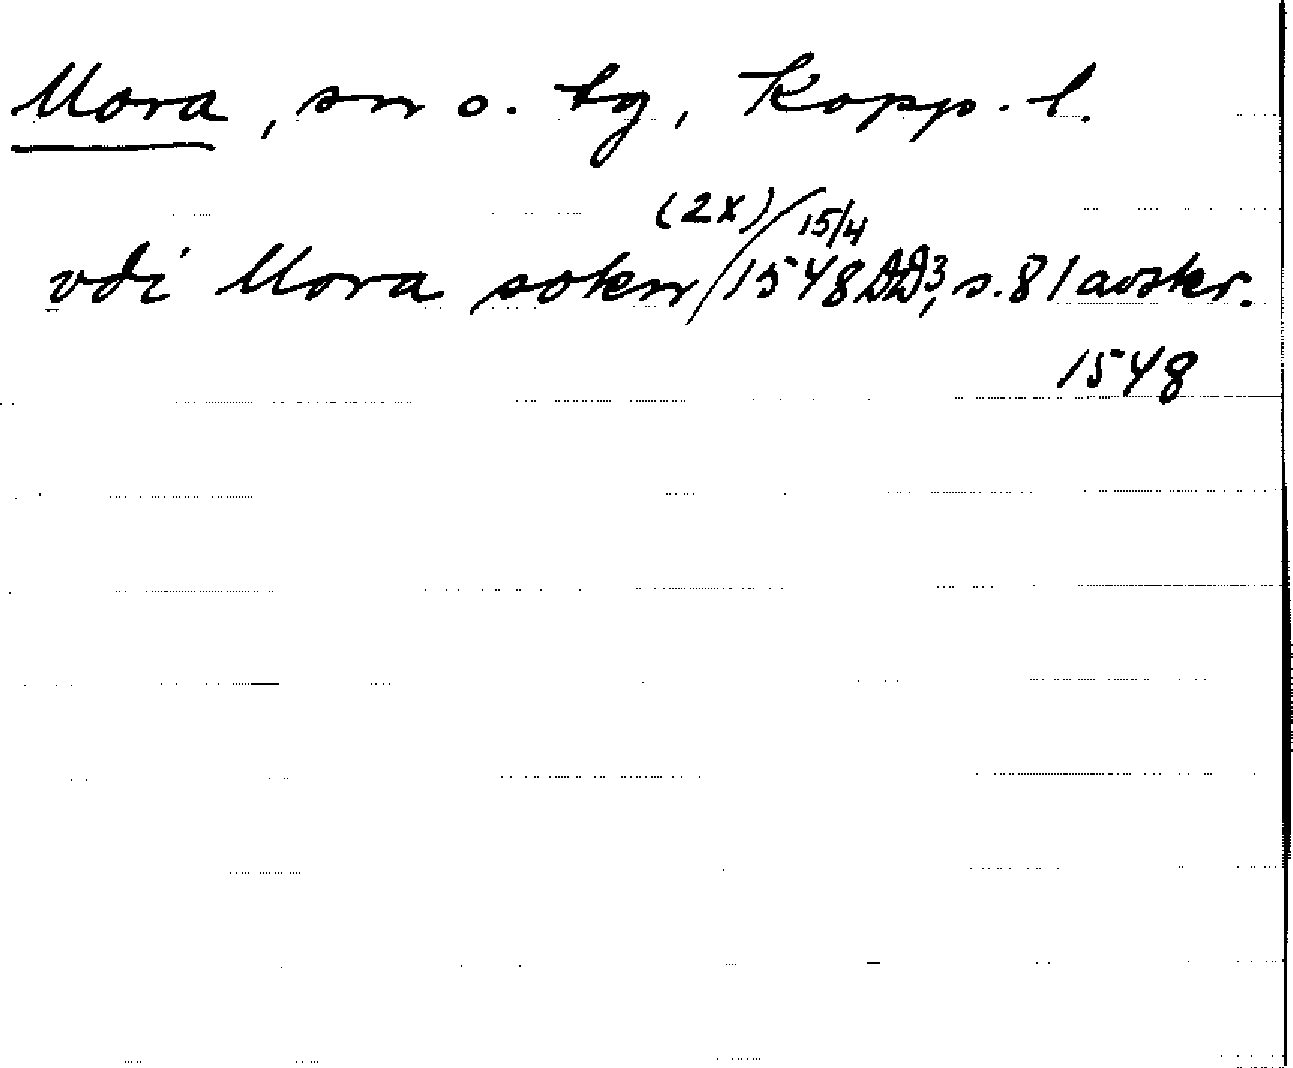 Mora, sn o. tg, Kopp. l.
(2x) 15/4
vdi Mora sokn / 1548 DD3, s. 81 avskr.
1548